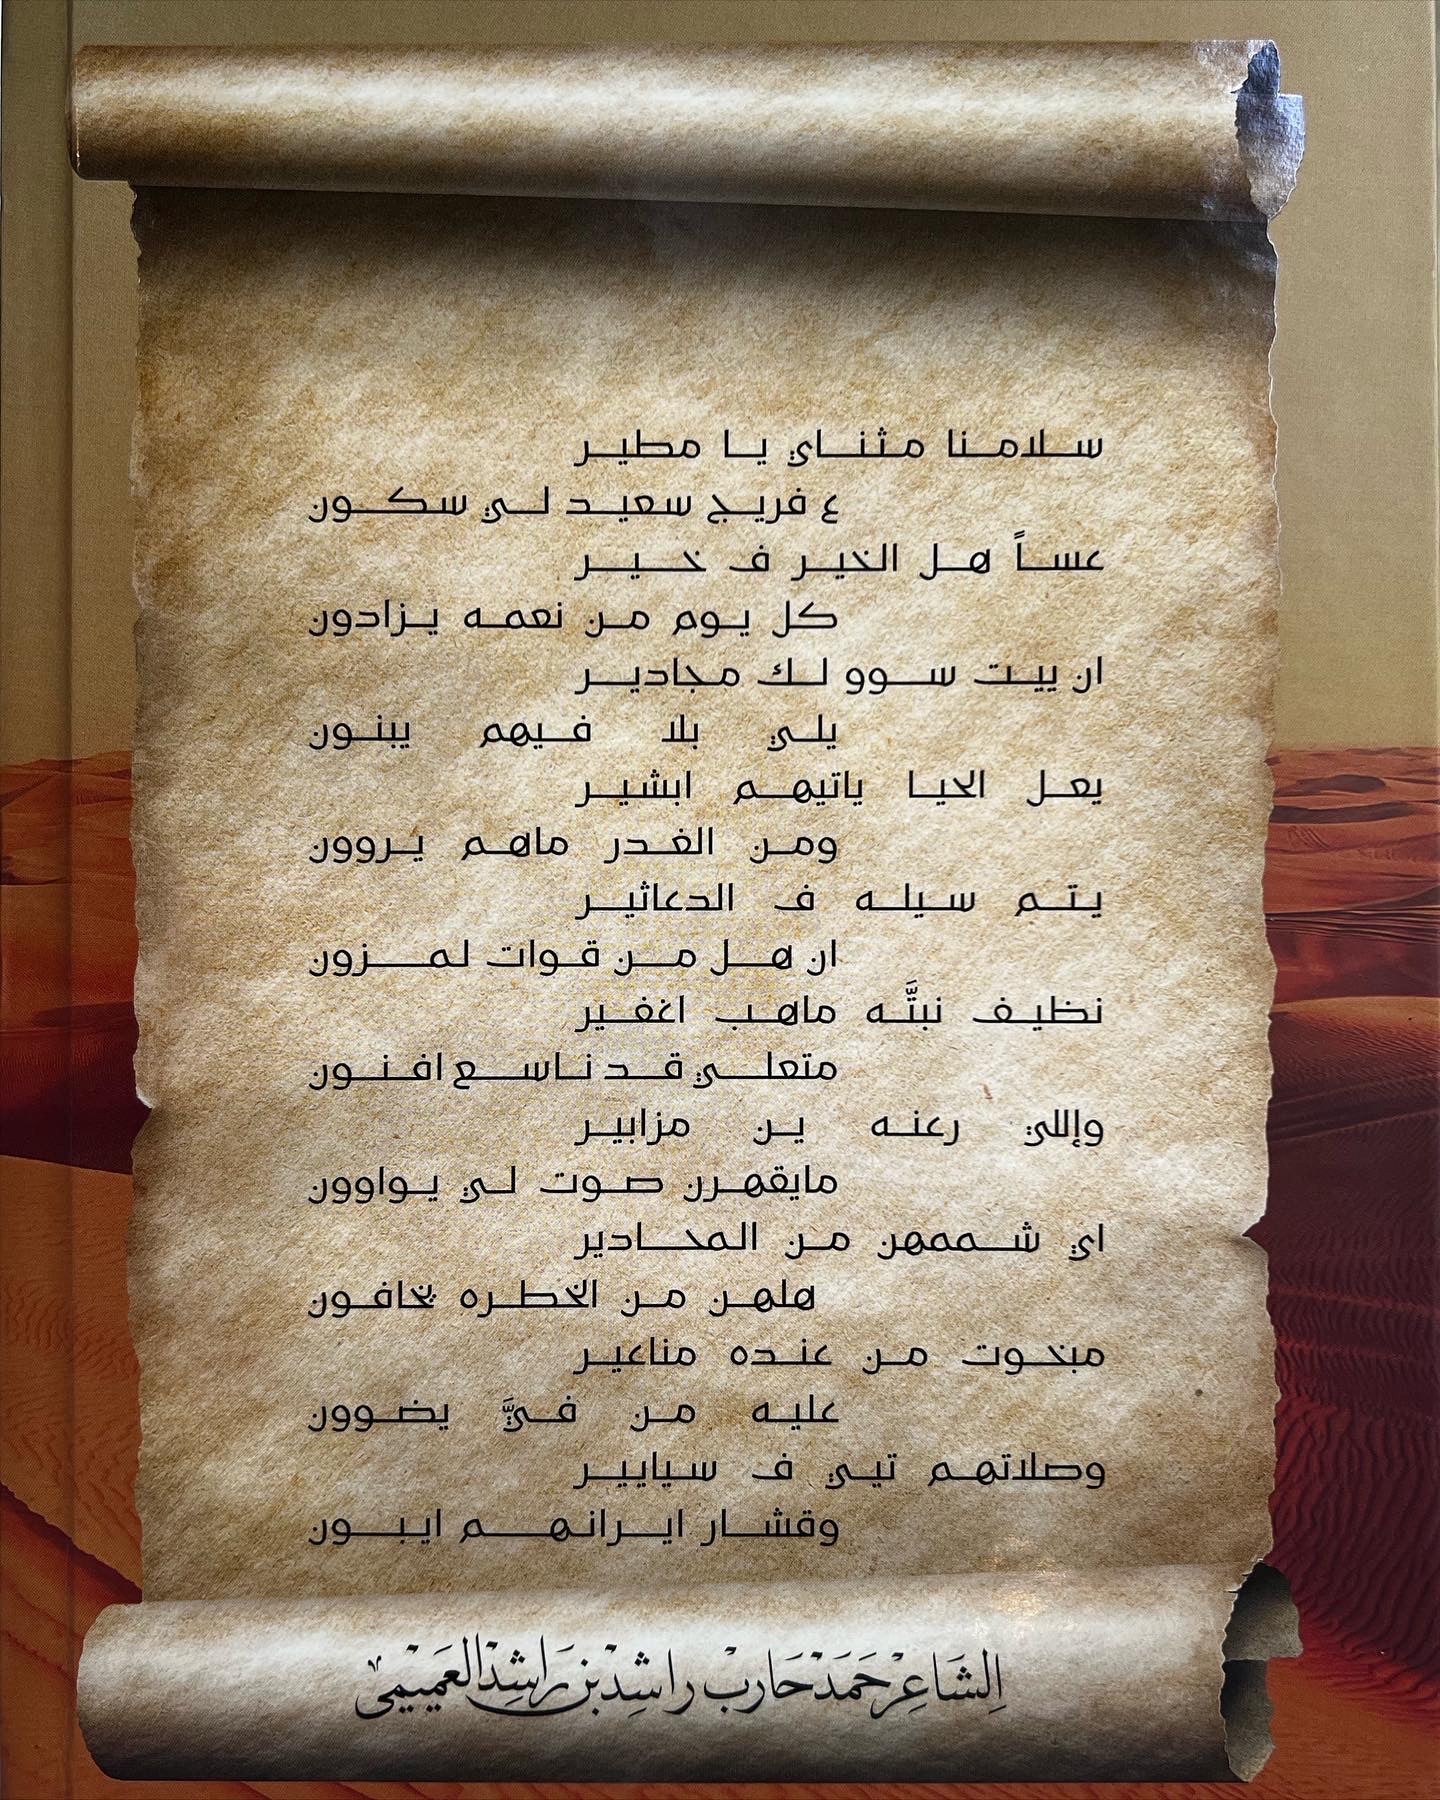 سلامنا مثناي يا مطير
ع فريج سعيد لي سكون
عساً هل الخير ف خير
كل يوم من نعمه يزادون
ان ييت سوو لك مجادير
يلي بلا فيهم يبنون
يعل الحيا ياتيهم ابشير
ومن الغدر ماهم يروون
يتم سيله ف الدعاثير
ان هل من قوات لمزون
نظيف نبتَّه ماهب اغفير
متعلي قد ناسع افنون
وإللي رعنه ين مزابير
مايقهرن صوت لي يواوون
اي شممهن من المحادير
هلهن من الخطره يخافون
مبخوت من عنده مناعير
عليه من فيَّ يضوون
وصلاتهم تيي ف سيايير
وقشار ايرانهم ايبون
الشَاعِرْ حَمَدْ حَاربْ راشِدْ بن رَاشِدْ العَميمي